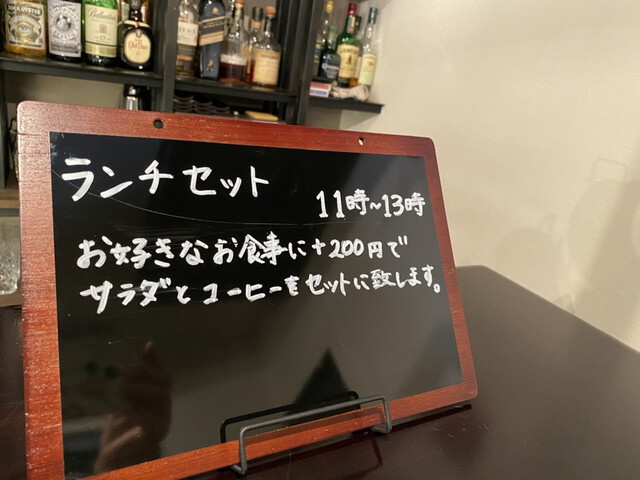 ランチセット
11時~13時
お好きなお食事に+200円で
サラダとコーヒーをセットに致します。